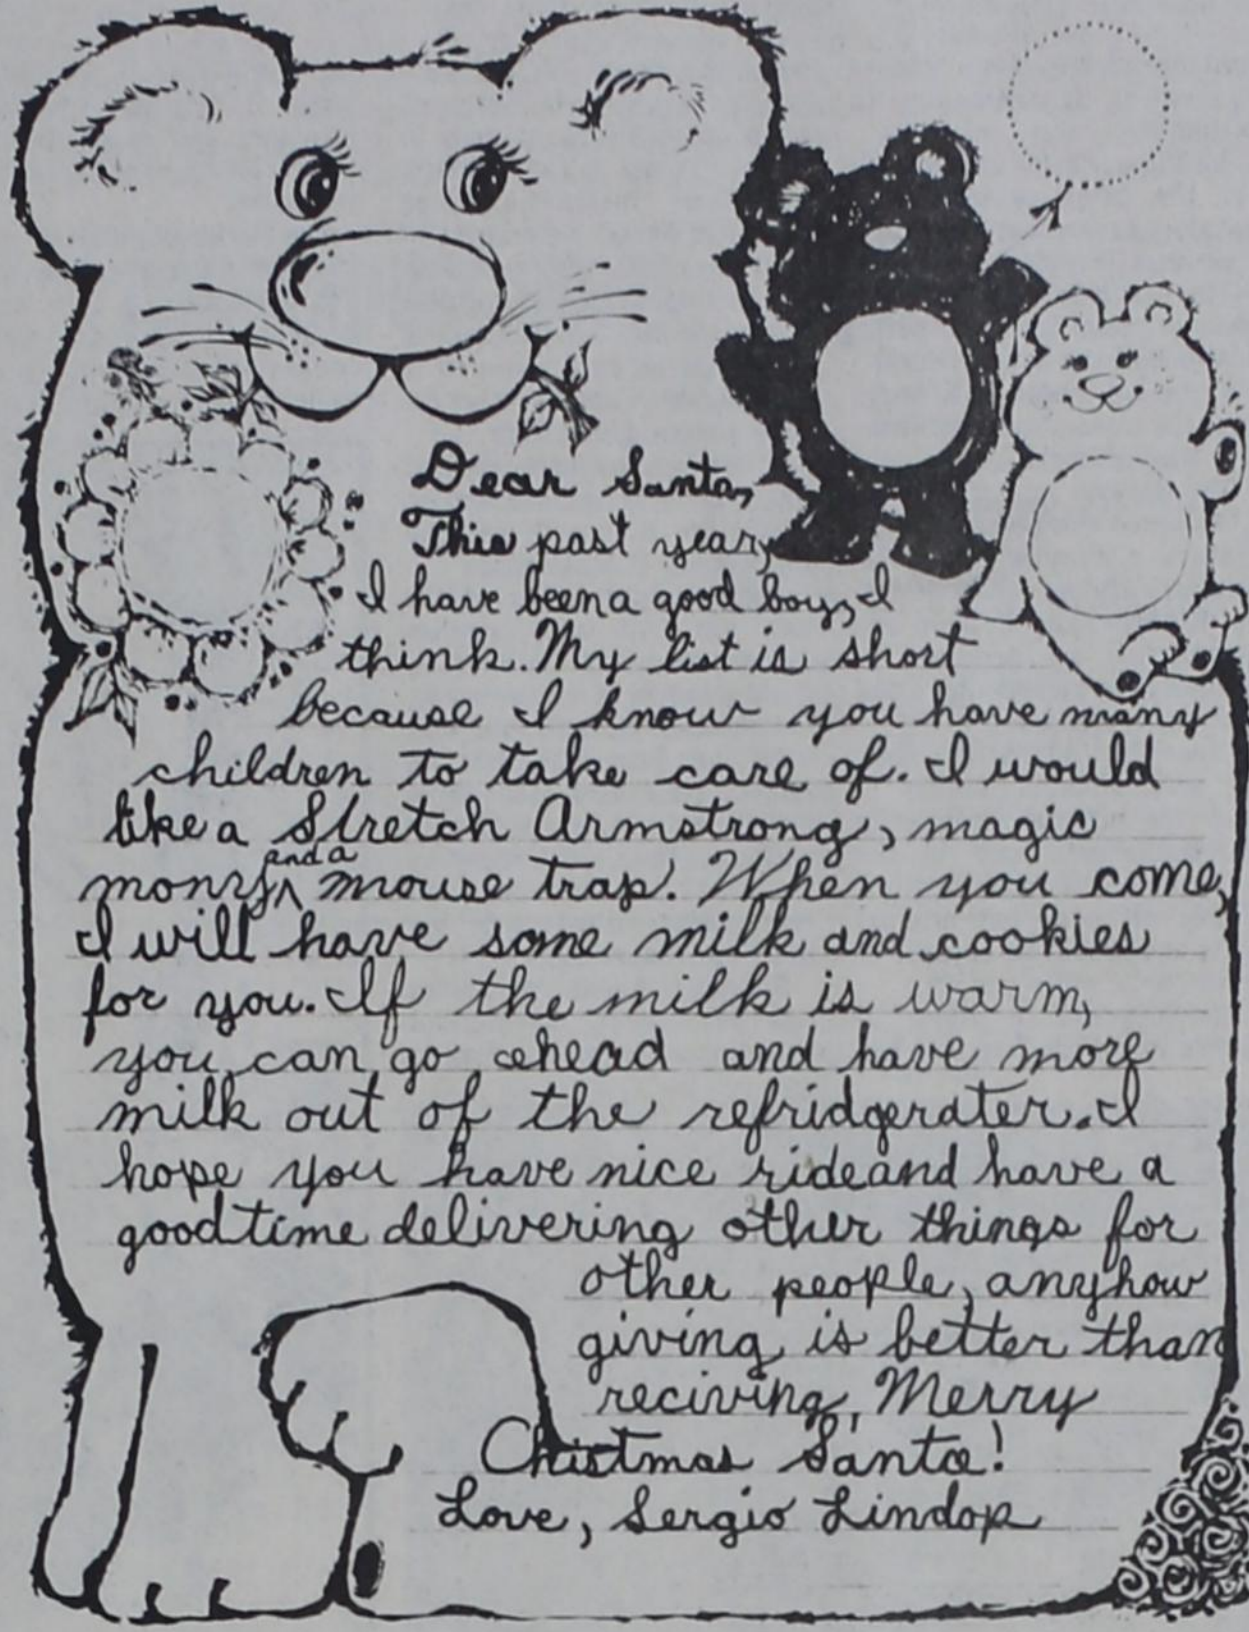 Dear Santa,
This past year,
I have been a good boy, I
think. My list is short
because I know you have many
children to take care of. I would
like a Stretch Armstrong, magic
and a
mony, ^ mouse trap. When you come,
I will have some milk and cookies
for you. If the milk is warm,
you can go ahead and have more
milk out of the refridgerater. I
hope you have nice ride and have a
good time delivering other things for
other people, anyhow
giving is better than
reciving, Merry
Chistmas Santa!
Love, Sergio Lindop